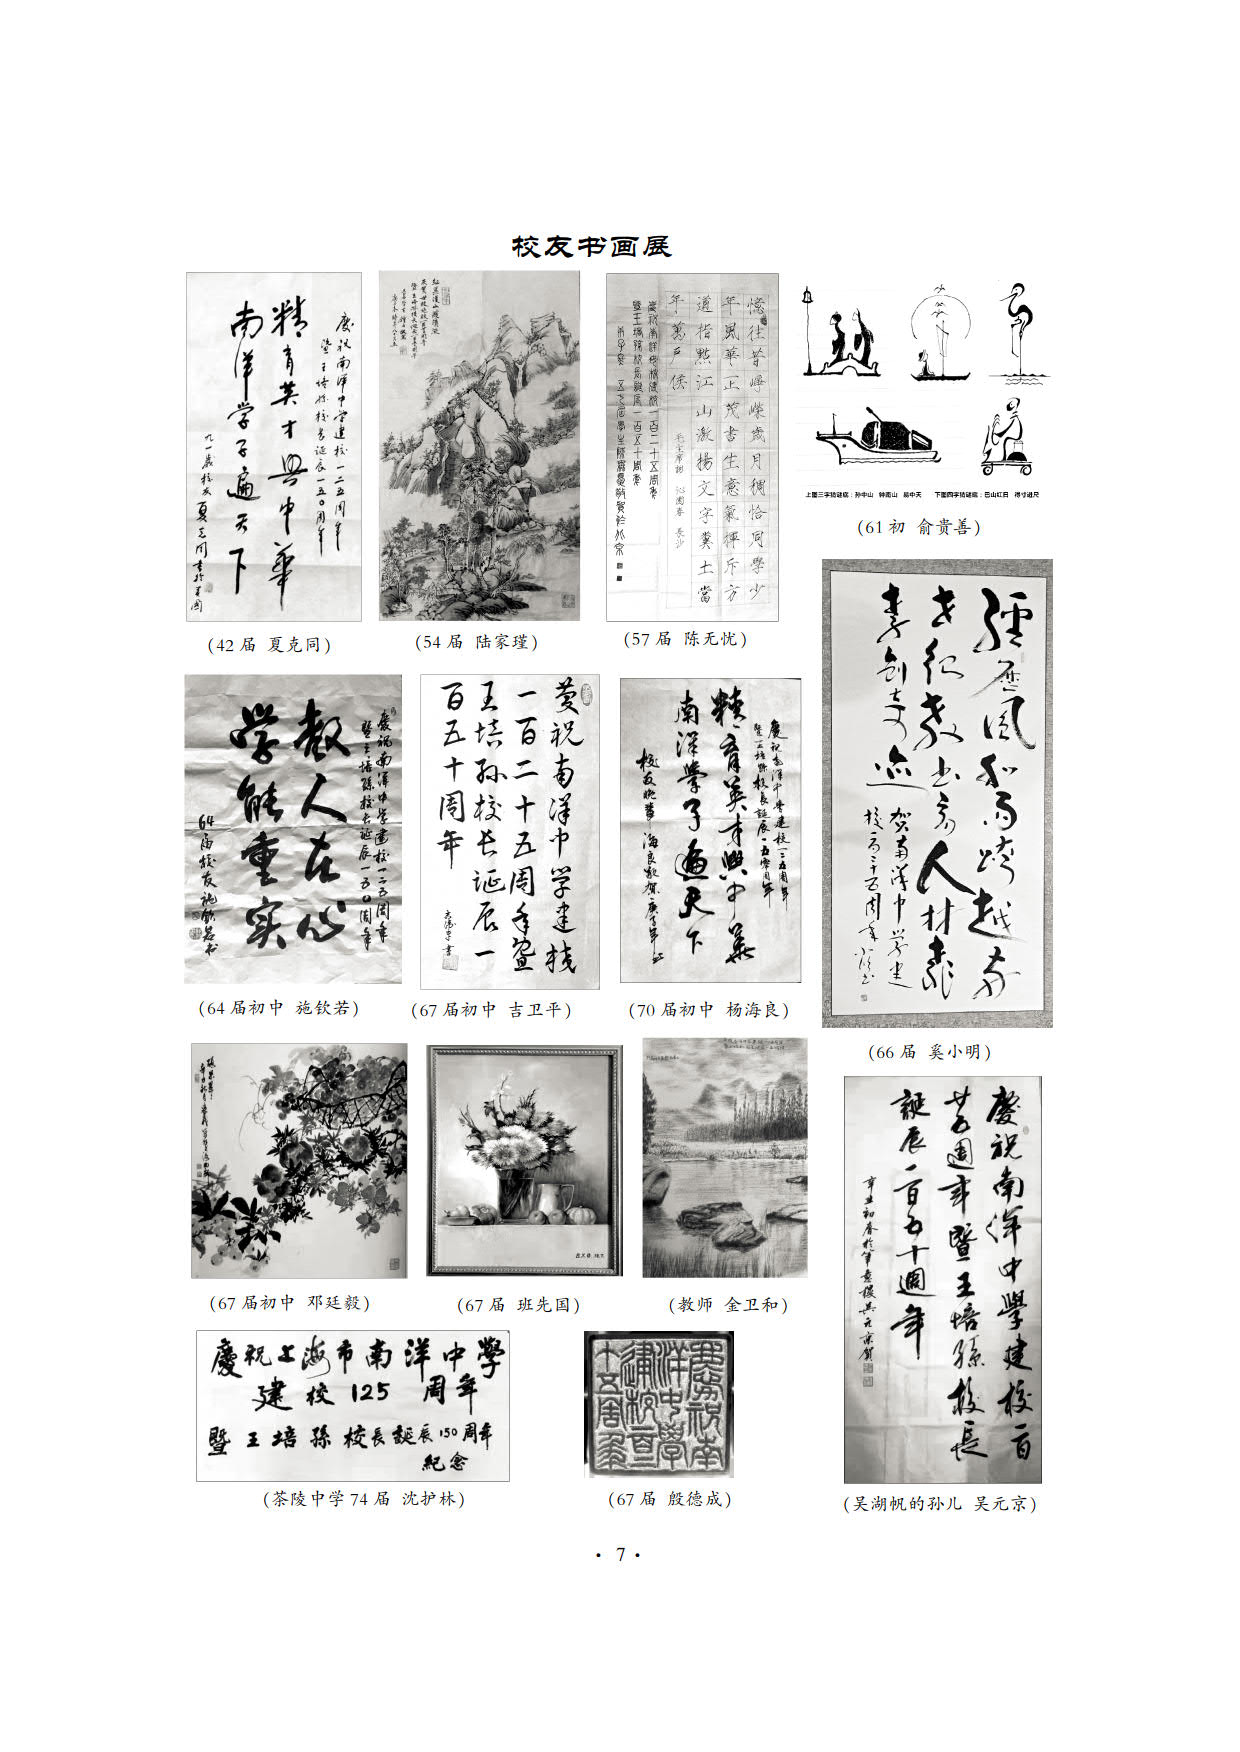 校友书画展
慶祝南洋中学建校一二五周年
暨王培孙校长诞辰一五〇周年
精育英才興中華
南洋学子遍天下
九一歲校友夏克同書於美國
(42届 夏克同)
(54届 陆家瑾)
憶往昔崢嶸歲月稠恰同學少
年風華正茂書生意氣揮斥方
遒指點江山激揚文字糞土當
年萬戶侯
毛主席詞 沁園春 長沙
(57届 陈无忧)
上图三字猜谜底：孙中山 钟南山 易中天 下图四字猜谜底：巴山红日 得寸进尺
(61初 俞贵善)
慶祝南洋中学建校一二五周年
暨王培孫校长诞辰一五〇周年
教人在心
学能重实
64届校友施钦若书
(64届初中 施钦若)
慶祝南洋中学建校
一百二十五周年暨
王培孙校长诞辰一
百五十周年
(67届初中 吉卫平)
慶祝南洋中學建校一二五周年
暨王培孫校長誕辰一五零周年
精育英才興中華
南洋學子遍天下
(70届初中 杨海良)
经历风和雨跨越两
世纪教书育人材辈
贺南洋中学建
校一百二十五周年
(66届 奚小明)
(67届初中 邓廷毅)
(67届 班先国)
(教师 金卫和)
慶祝南洋中學建校一百
廿五週年暨王培孫校長
誕辰一百五十週年
辛丑初春
(吴湖帆的孙儿 吴元京)
慶祝上海市南洋中學
建校125周年
暨王培孫校長誕辰150周年
紀念
(茶陵中学74届 沈护林)
慶祝南
洋中學
建校百
廿五周年
(67届 殷德成)
· 7 ·